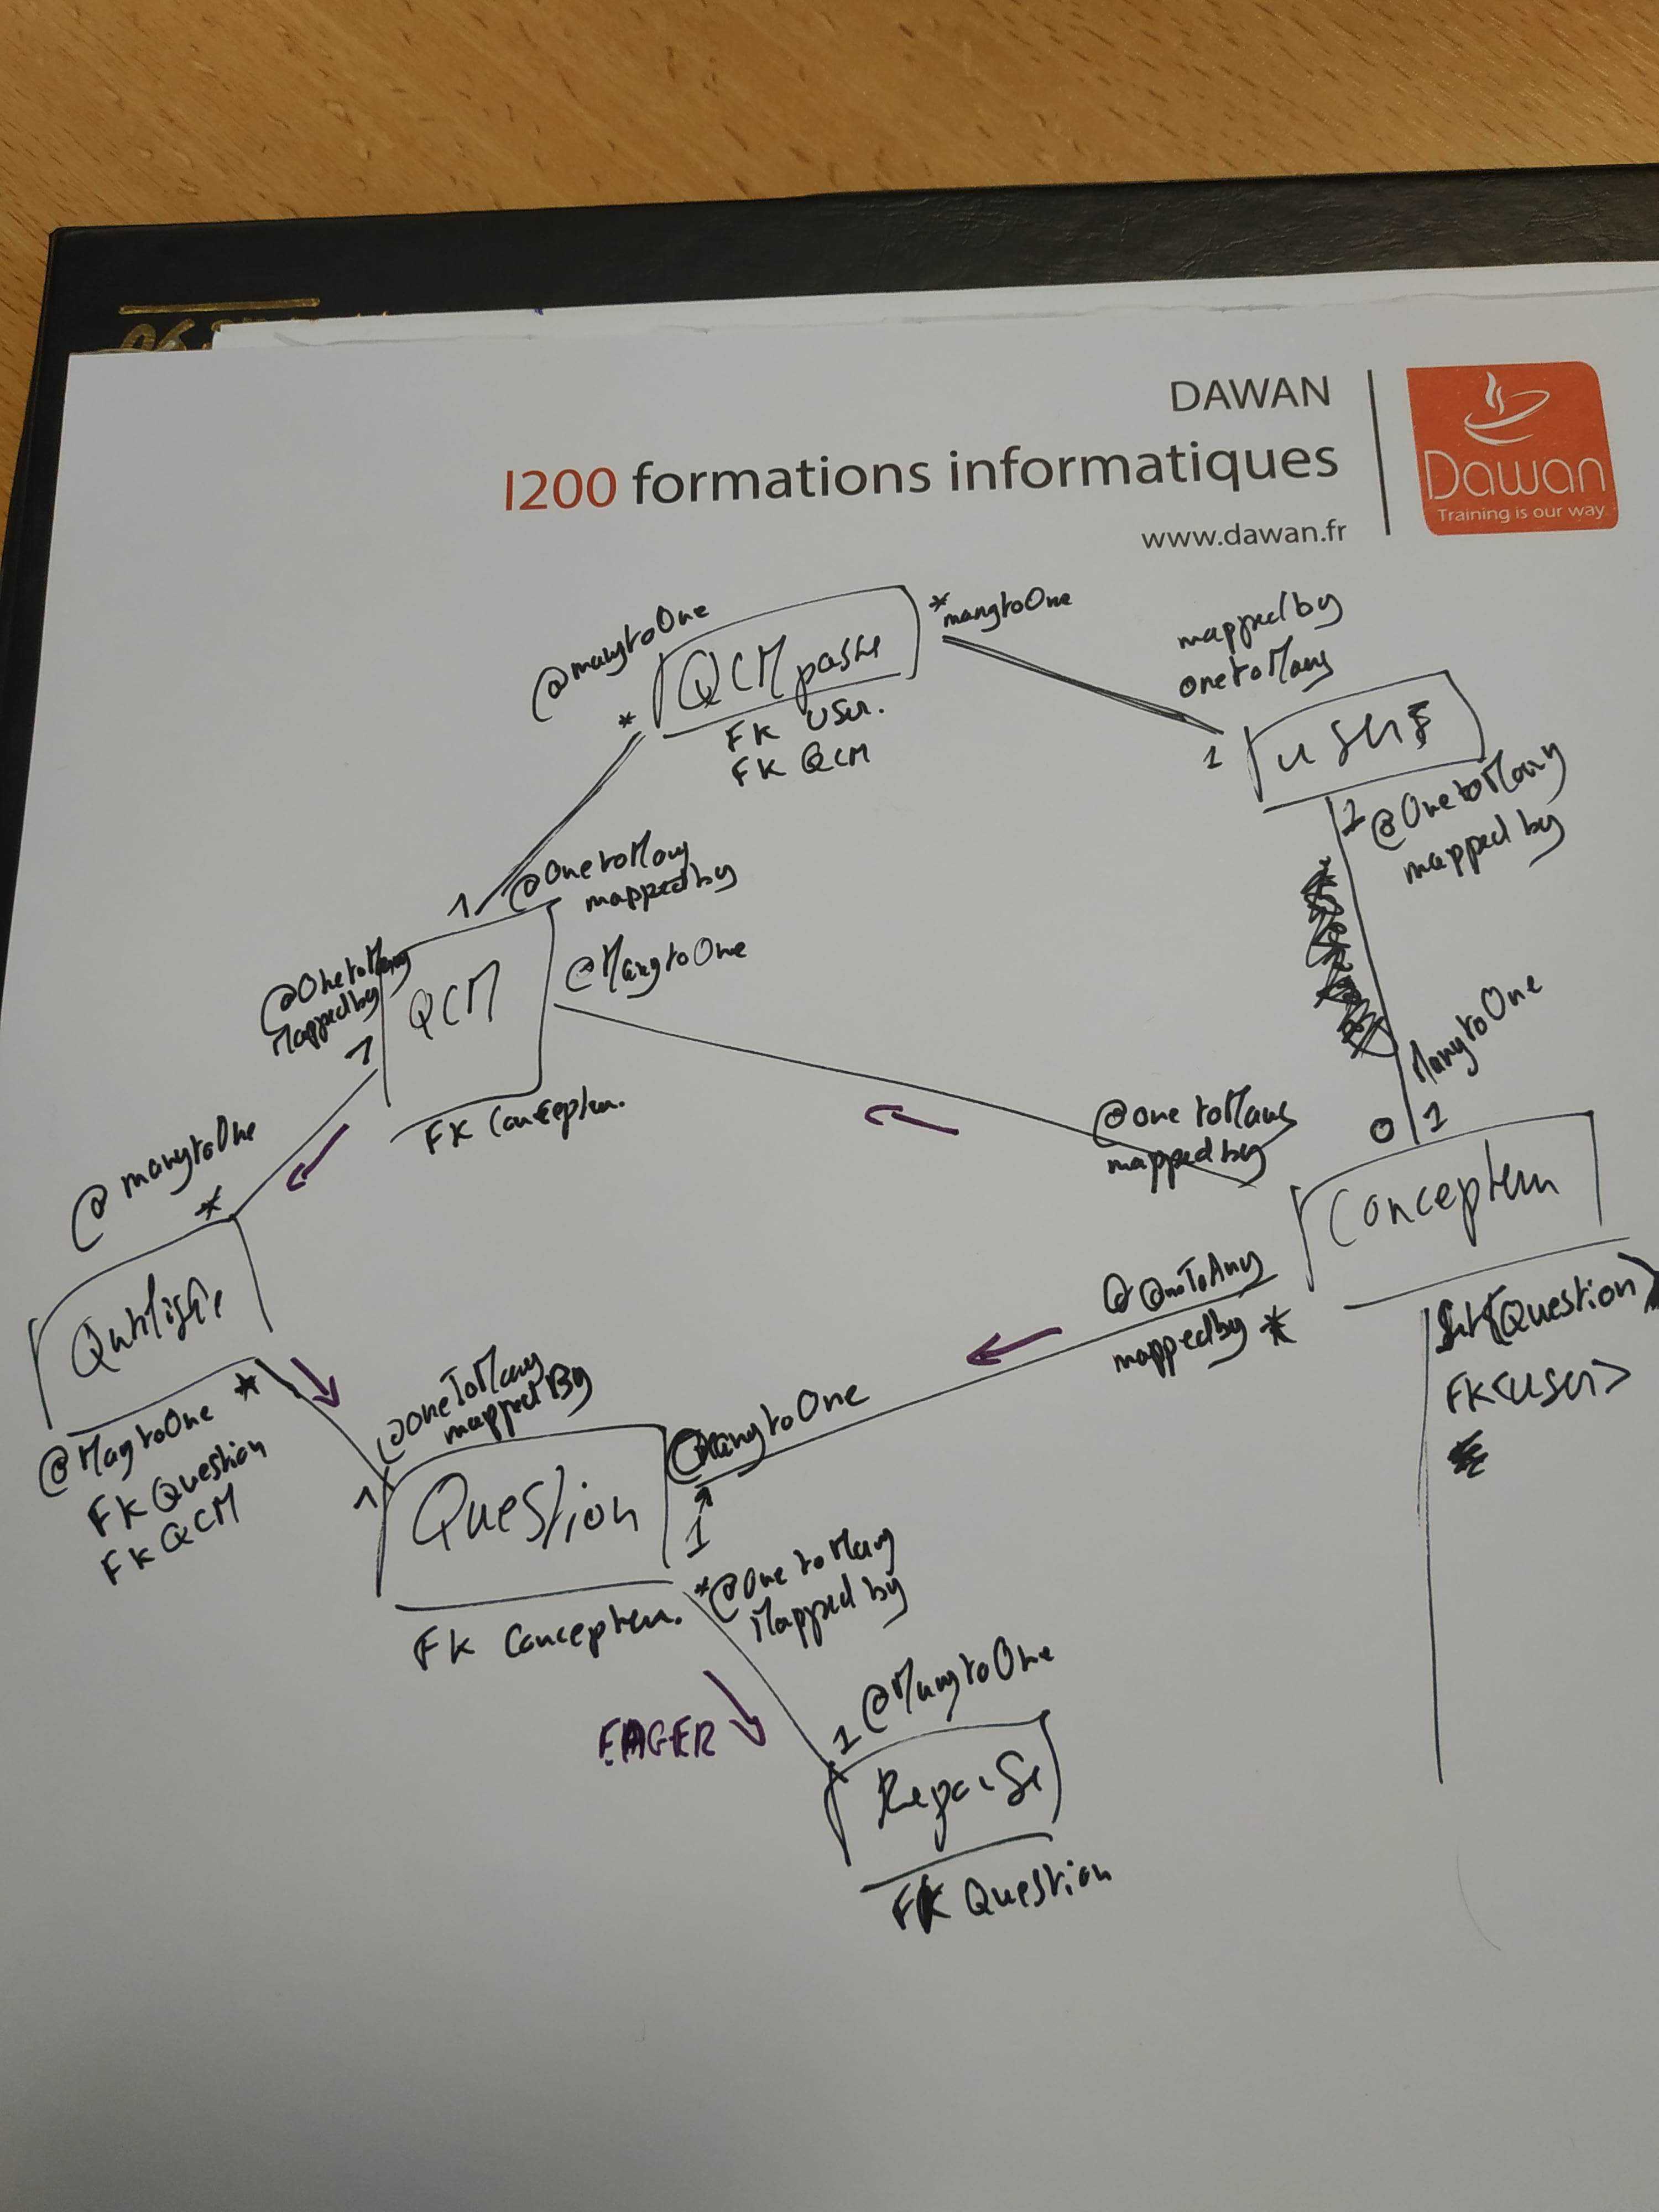 DAWAN
1200 formations informatiques
www.dawan.fr
Dawan
Training is our way
@manytoOne
*
QCM passe
FK User.
FK QCM
* manytoOne
mapped by
onetoMany
1
users
1 @OnetoMany
mapped by
ManytoOne
0 1
1 @OnetoMany
mappedby
@OnetoMany
Mappedby
1
QCM
@ManytoOne
FK Concepteur.
@onetoMany
mapped by
Concepteur
Set<Question>
FK<user>
@manytoOne
*
@ManytoOne *
FK Question
FK QCM
@oneToMany
mappedBy
1
Question
FK Concepteur.
@ManytoOne
1
@OneToAny
mappedby *
* @OnetoMany
Mapped by
EAGER
1 @ManytoOne
Reponse
FK Question